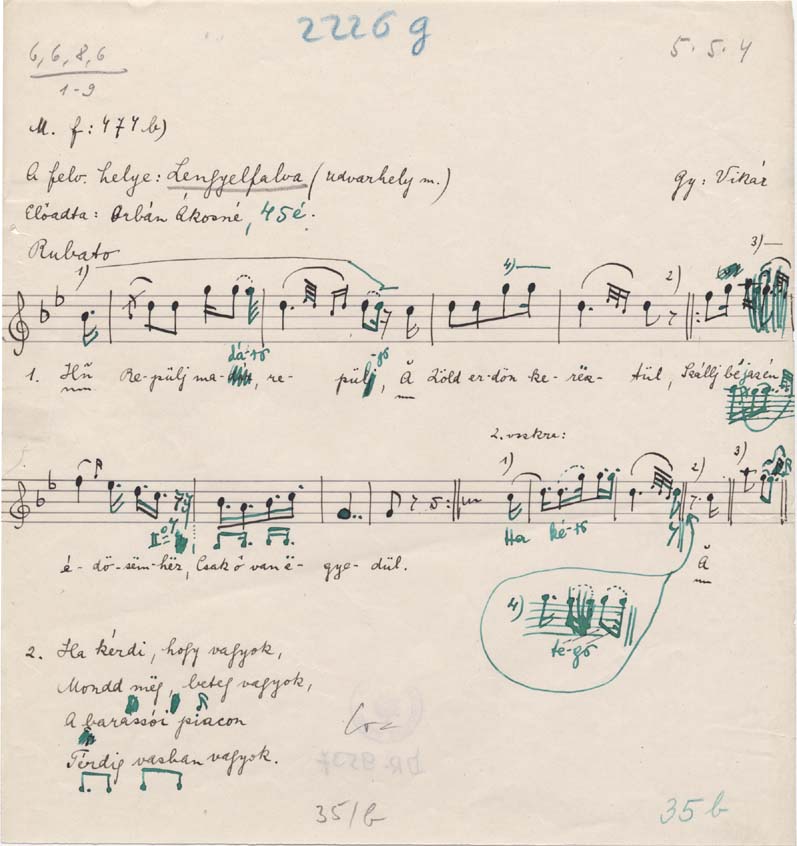 2226 g
6, 6, 8, 6
5. 5. 4
1-9
M. f: 474 b)
A felv. helye: Lengyelfalva (Udvarhely m.)
Gy: Vikár
Előadta: Orbán Ákosné, 45é.
Rubato
1) 4) 2) 3)
dá-ró -jó
1. Hŭ Re-pülj ma-, re- pülj, Ă Zöld er-dön ke-rĕz- tül, Szállj bé jazén
2. vszkre:
1) 2) 3)
Ha ké-rő
é-dö-sëm-hëz, Csak ő van ë- gye-dül.
Ă
4)
te-gö
2. Ha kérdi, hogy vagyok,
Mondd mëg, beteg vagyok,
A barassói piacon
Térdig vasban vagyok.
35/b
35 b